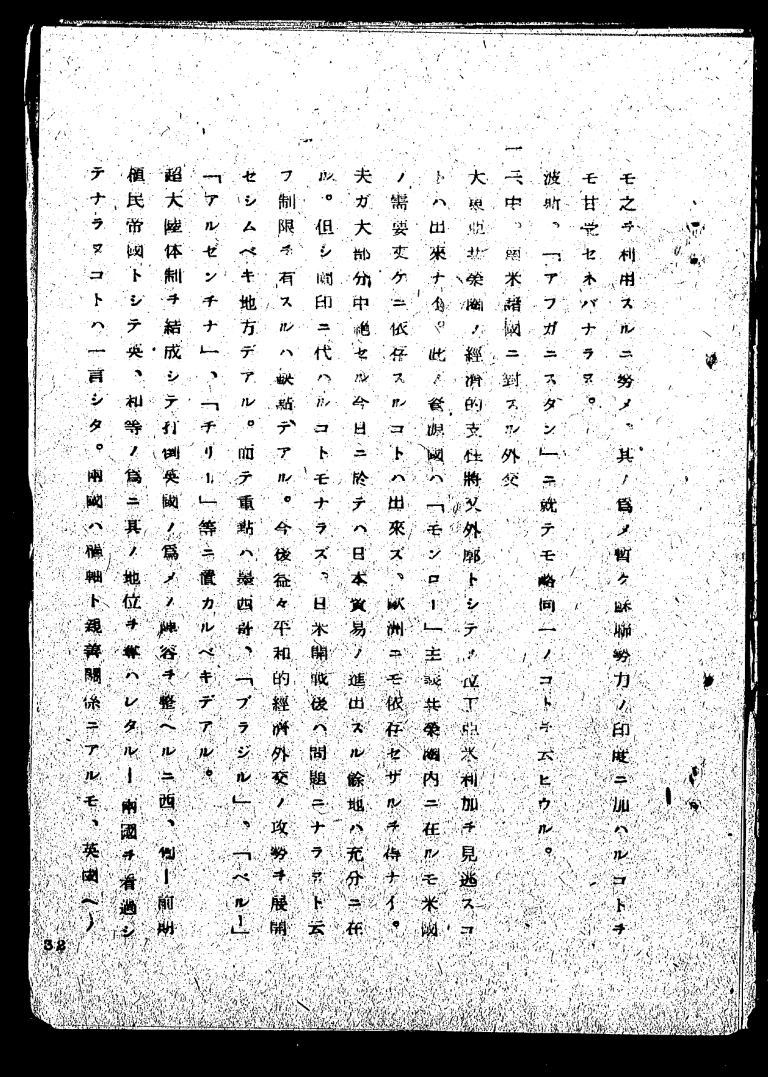 モ之ヲ利用スルニ努メ。其ノ爲メ暫ク蘇聯勢力ノ印度ニ加ハルコトヲ
モ甘受セネバナラヌ。
波斯。「アフガニスタン」ニ就テモ略同一ノコトヲ云ヒウル。
一三、中。南米諸國ニ對スル外交
大東亞共榮圏ノ經濟的支柱將又外廓トシテノ拉丁亞米利加ヲ見逃スコ
トハ出來ナイ。此ノ資源國ハ「モンロー」主義共榮圏内ニ在ルモ米國
ノ需要丈ケニ依存スルコトハ出來ズ、歐洲ニモ依存セザルヲ得ナイ。
夫ガ大部分中絶セル今日ニ於テハ日本貿易ノ進出スル餘地ハ充分ニ在
ル。但シ蘭印ニ代ハルコトモナラズ、日米開戰後ハ問題ニナラヌト云
フ制限ヲ有スルハ缺點デアル。今後益々平和的經濟外交ノ攻勢ヲ展開
セシムベキ地方デアル。而テ重點ハ墨西哥、「ブラジル」、「ペルー」
「アルゼンチナ」、「チリー」等ニ置カルベキデアル。
超大陸体制ヲ結成シテ打倒英國ノ爲メノ陣容ヲ整ヘルニ西、葡ー前期
植民帝國トシテ英、和等ノ爲ニ其ノ地位ヲ奪ハレタルー兩國ヲ看過シ
テナラヌコトハ一言シタ。兩國ハ樞軸ト親善關係ニアルモ、英國ヘノ
32